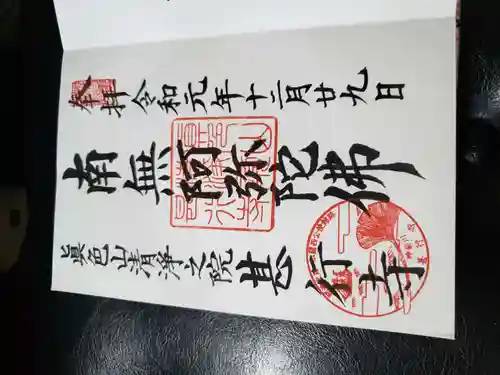 奉拝 令和元年十二月廿九日
南無阿弥陀佛
真色山清浄之院 甚行寺